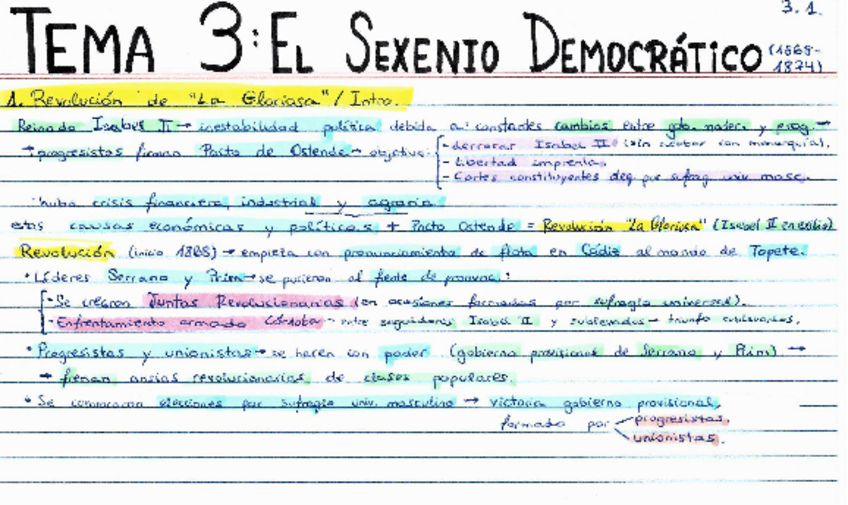 3.1.
TEMA 3: EL SEXENIO DEMOCRÁTICO (1868-1874)
1. Revolución de "La Gloriosa" / Intro.
Reinado Isabel II → inestabilidad política debida a: constantes cambios entre gob. moder. y prog. →
→ progresistas firman Pacto de Ostende → objetivo:
- derrocar Isabel II (sin acabar con monarquía).
- Libertad imprenta.
- Cortes constituyentes deg. por sufrag. univ. masc.
hubo crisis financiera, industrial y agraria
estas causas económicas y políticas + Pacto Ostende = Revolución "La Gloriosa" (Isabel II en exilio)
Revolución (inicio 1868) → empieza con pronunciamiento de flota en Cádiz al mando de Topete.
• Líderes Serrano y Prim → se pusieron al frente de :
- Se crearon Juntas Revolucionarias (en ocasiones formadas por sufragio universal).
- Enfrentamiento armado Córdoba → entre seguidores Isabel II y sublevados → triunfo sublevados.
• Progresistas y unionistas → se hacen con poder (gobierno provisional de Serrano y Prim) →
→ frenan ansias revolucionarias de clases populares.
• Se convocaron elecciones por sufragio univ. masculino → victoria gobierno provisional,
formado por
progresistas,
unionistas.